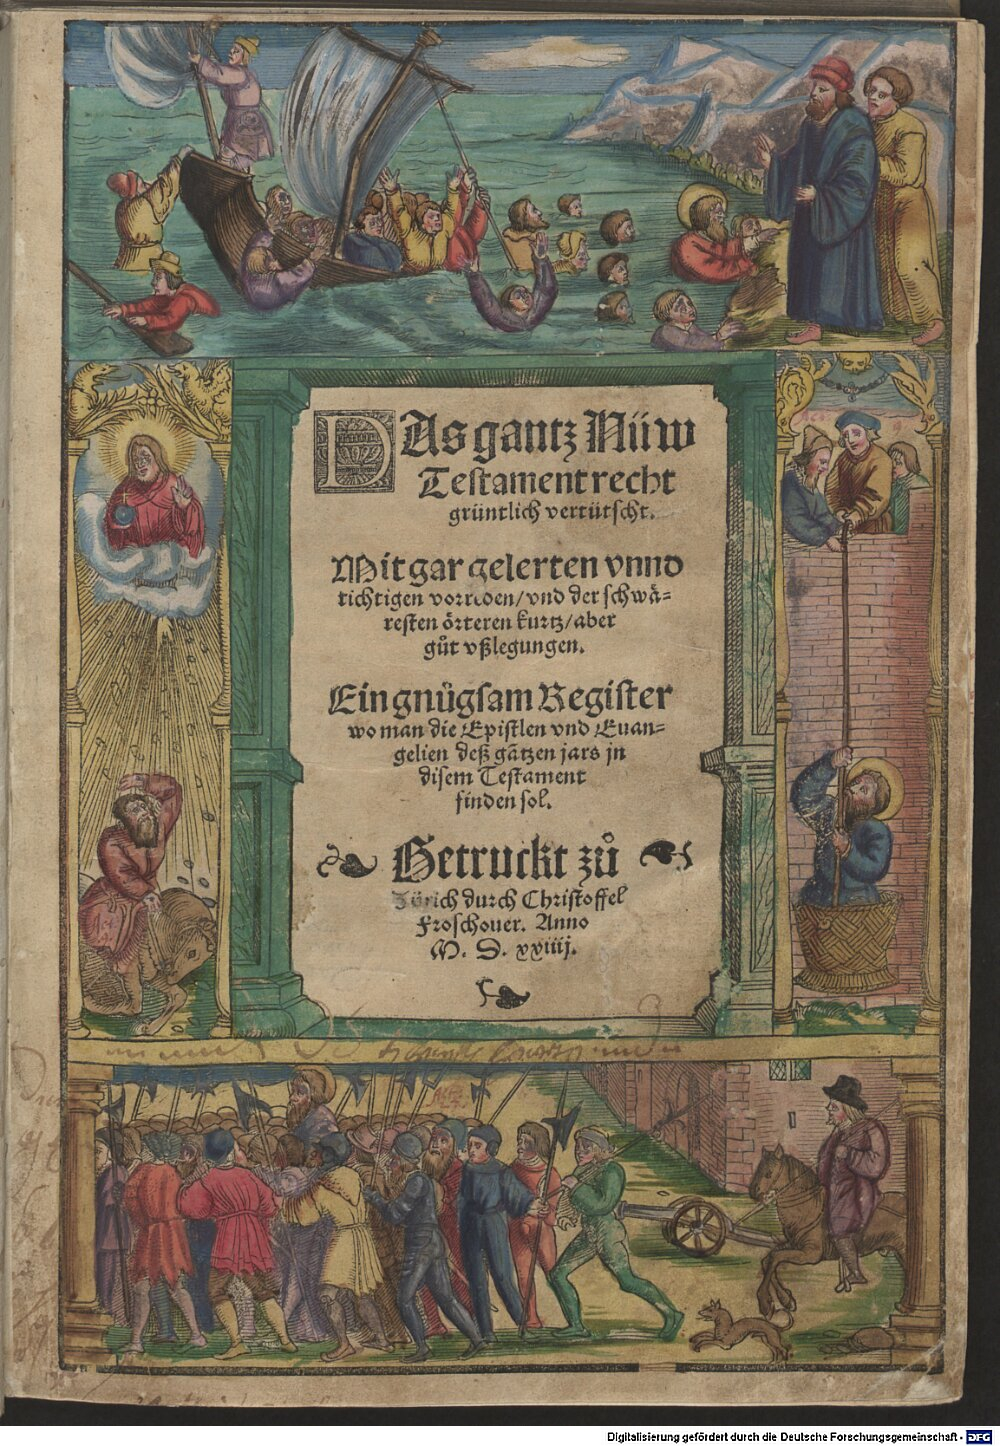 DAs gantz Nüw
Testament recht
grüntlich vertütscht.
Mit gar gelerten vnnd
richtigen vorreden/vnd der schwä-
resten örteren kurtz/aber
gůt vßlegungen.
Ein gnůgsam Register
wo man die Epistlen vnd Euan-
gelien deß gātzen jars jn
disem Testament
finden sol.
Getruckt zů
Zürich durch Christoffel
Froschouer. Anno
M. D. xxiiij.
Digitalisierung gefördert durch die Deutsche Forschungsgemeinschaft - DFG